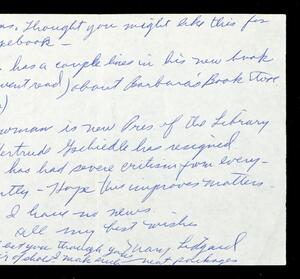 Thought you might like this for
book —
has a couple lines in his new book
read) about Barbara's Book Store
woman is new Pres. of the Library
Gertrude has resigned
has had severe critism from every-
Hope this improves matters.
I have no news —
all my best wishes
you through Mary
make such neat packages